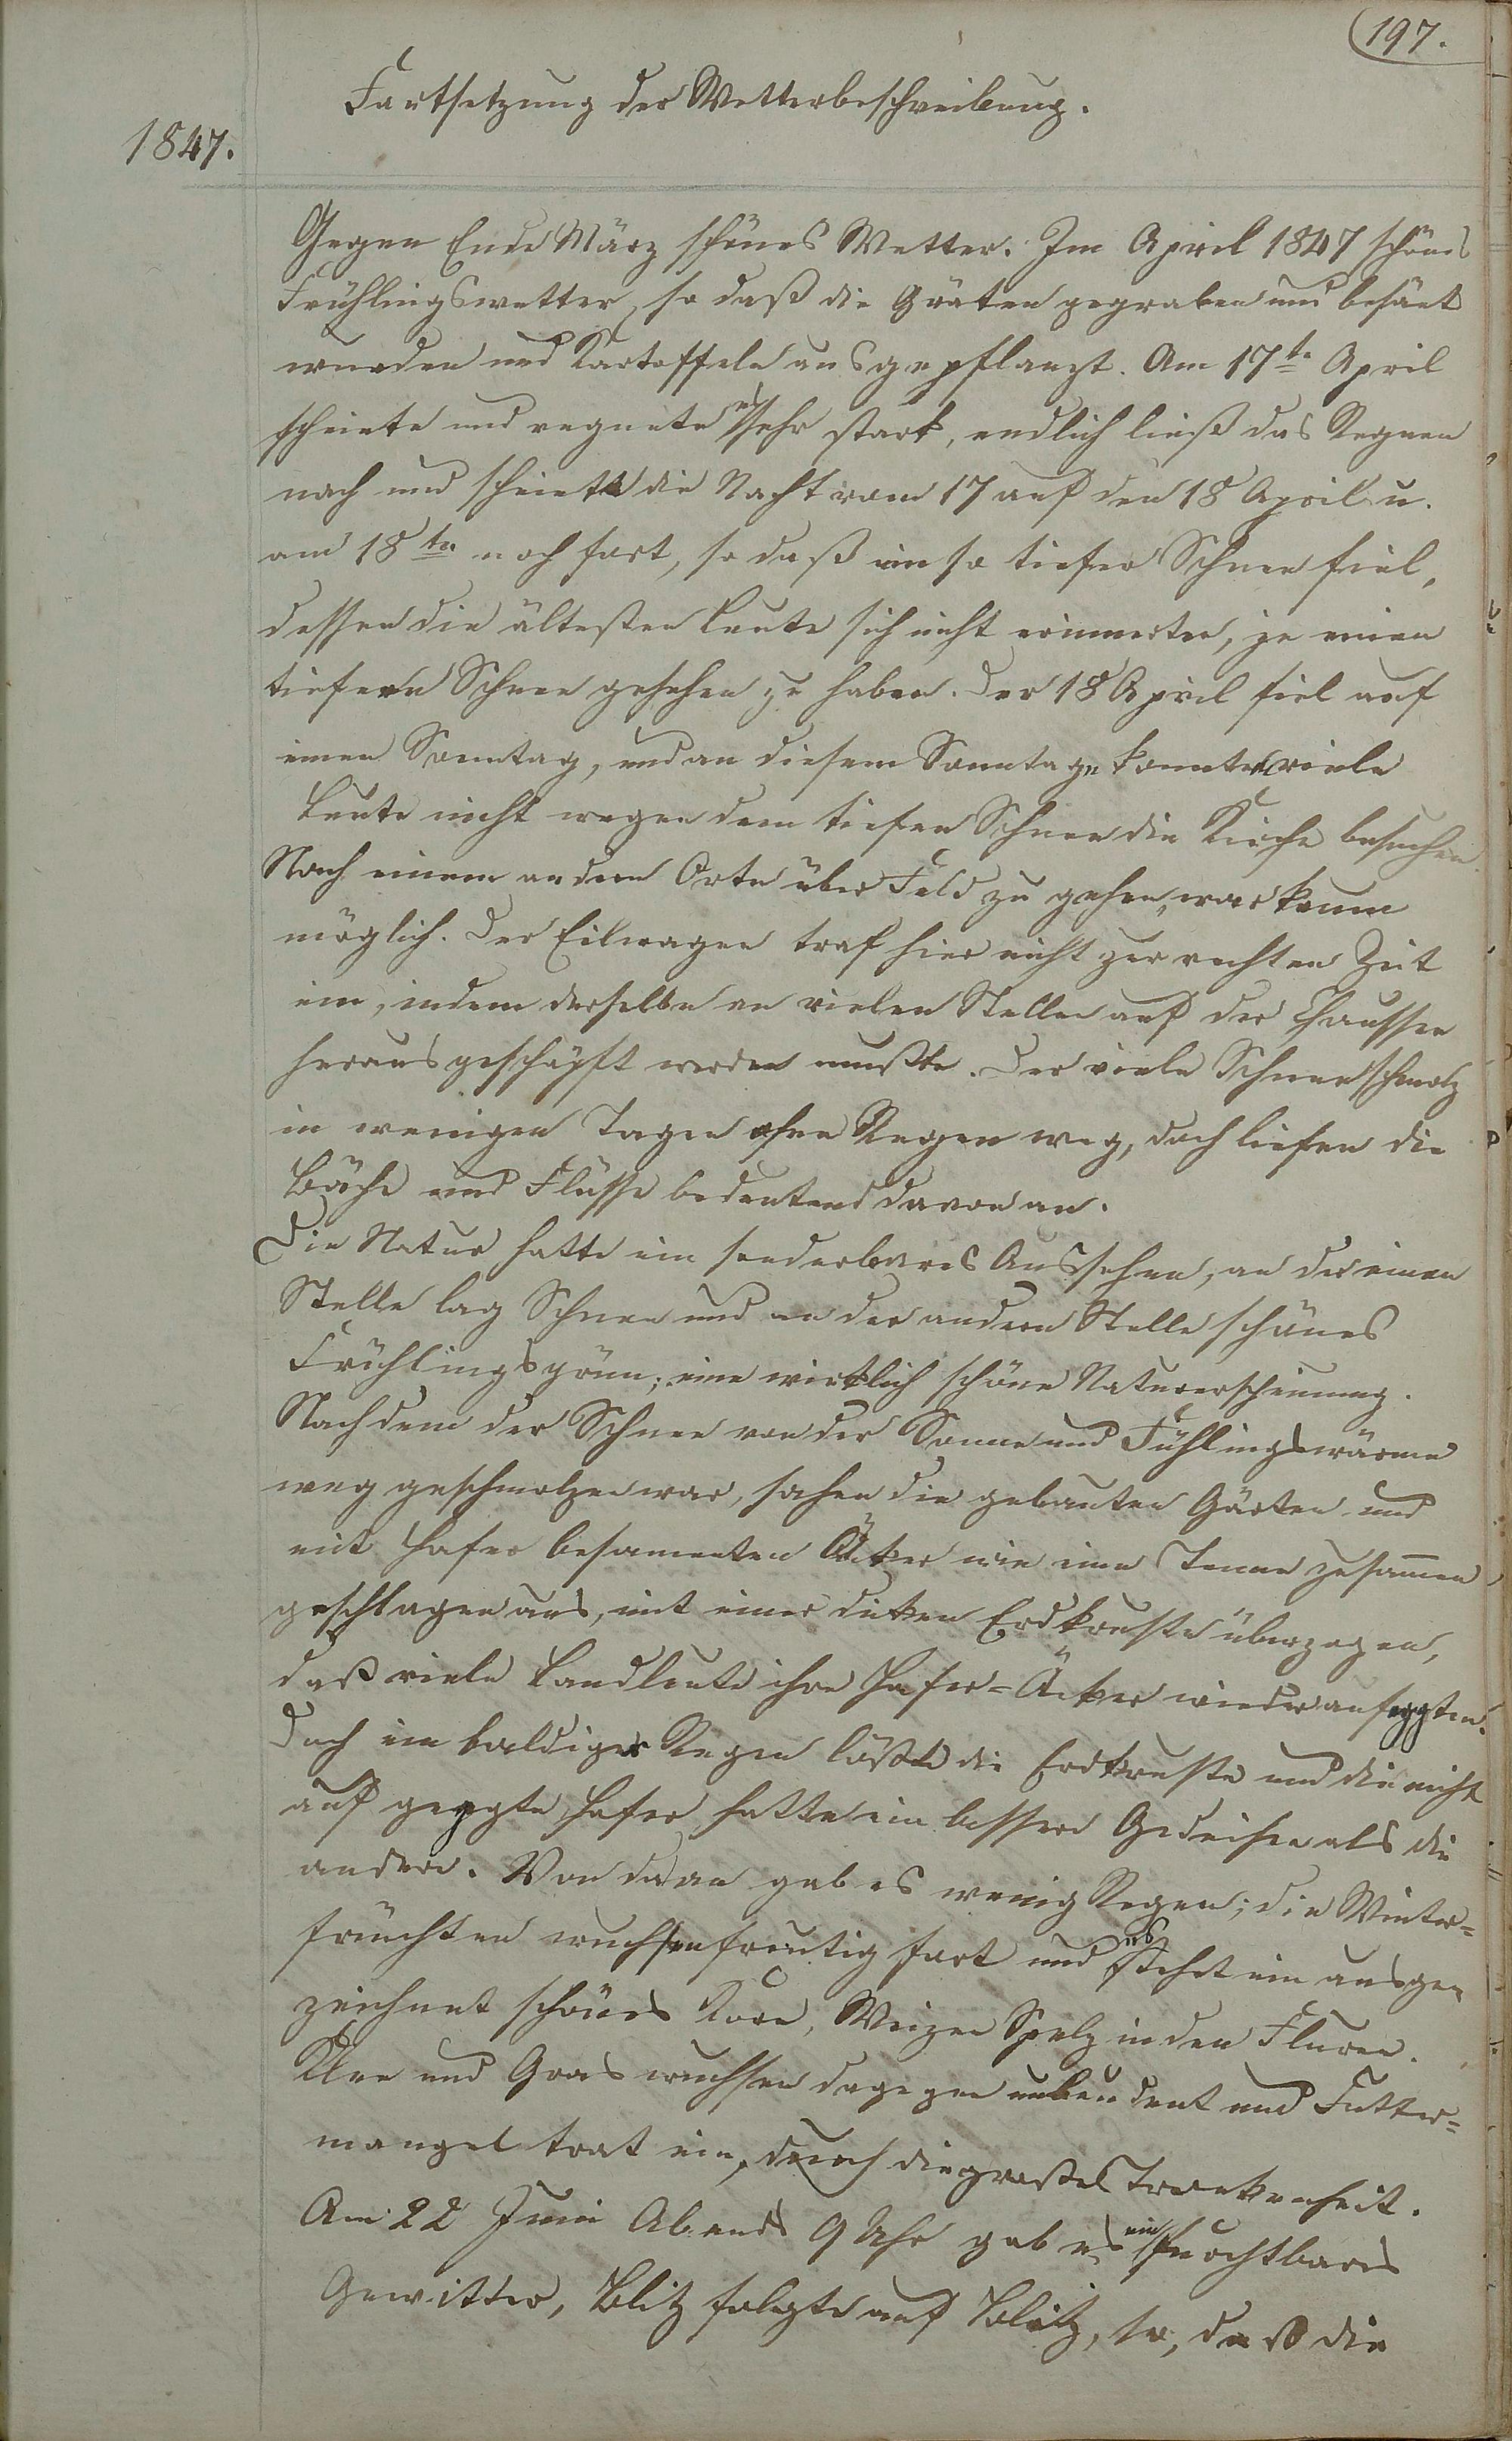 197.
Fortsetzung der Wetterbeschreibung.
1847.
Gegen Ende März schönes Wetter. Im April 1847 schönes
Frühlingswetter, so daß die Gräten gegraben und besäet
wurden und Kartoffeln ausgepflanzt. Am 17te April
schneite und regnete es sehr stark, endlich ließ das Regnen
nach und schneite die Nacht vom 17 auf den 18 April u.
am 18ten noch fort, so daß ein so tiefer Schnee fiel,
dessen die ältesten Leute sich nicht erinnerten, je einen
tiefern Schnee gesehen zu haben. Der 18 April fiel auf
einen Sonntag, und an diesem Sonntage konnten viele
Leute nicht wegen dem tiefen Schnee die Kirche besuchen.
Nach einem andern Orte über Feld zu gehen, war kaum
möglich. Der Eilwagen traf hier nicht zur rechten Zeit
ein, indem derselbe an vielen Stellen auf der Chaussee
herausgeschöpft werden mußte. Der viele Schnee schmolz
in wenigen Tagen ohne Regen weg, doch liefen die
Bäche und Flüsse bedeutend davon an.
Die Natur hatte ein sonderbares Aussehen, an der einen
Stelle lag Schnee und an der andern Stelle schönes
Frühlingsgrün; eine wirklich schöne Naturerscheinung.
Nachdem der Schnee von der Sonne und Fühlingswärme
weg geschmolzen war, sahen die gebauten Gärten und
mit Hafer besamenten Äcker wie eine Tenne zusammen
geschlagen aus, mit einer dicken Erdkruste überzogen,
daß viele Landleute ihre Hafer-Äcker wieder aufeggten.
Doch ein baldiger Regen lößte die Erdkruste und die nicht
auf geeggte Hafer hatte ein besseres Gedeihen als die
andern. Von da an gab es wenig Regen; die Winter=
früchten wuchsen freudig fort und es stehet ein ausge=
zeichnet schönes Korn, Weizen Spelz in den Fluren.
Klee und Gras wuchsen dagegen unbeudent und Futter=
mangel trat ein, durch die große Trockenheit.
Am 22 Juni Abends 9 Uhr gab es ein furchtbares
Gewitter, Blitz folgte auf Blitz, so, daß die